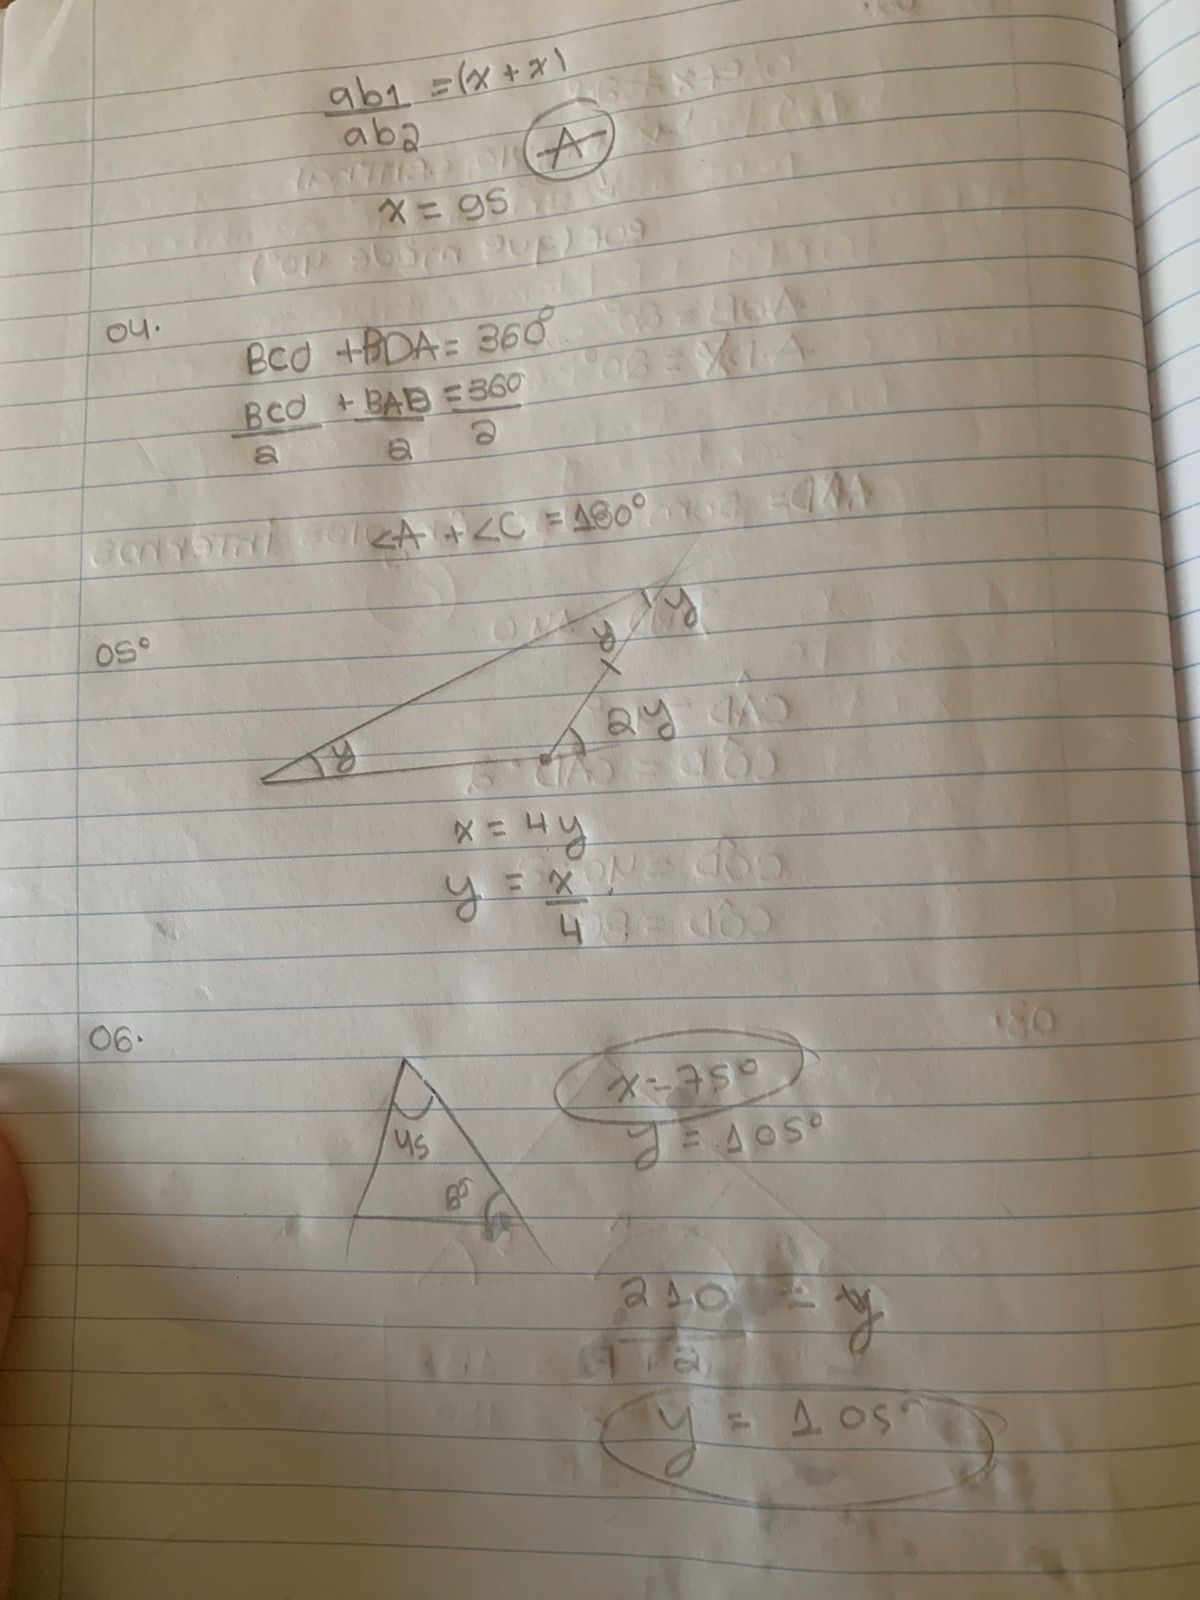 ab1 = (x + x)
ab2
A
x = 95
04.
BCd + BDA = 360°
BCd + BAD = 360
2 2 2
<A + <C = 180°
05°
y
y
y
2y
x = 4y
y = x
4
06.
45
x = 75°
y = 105°
210 = y
2
y = 105°